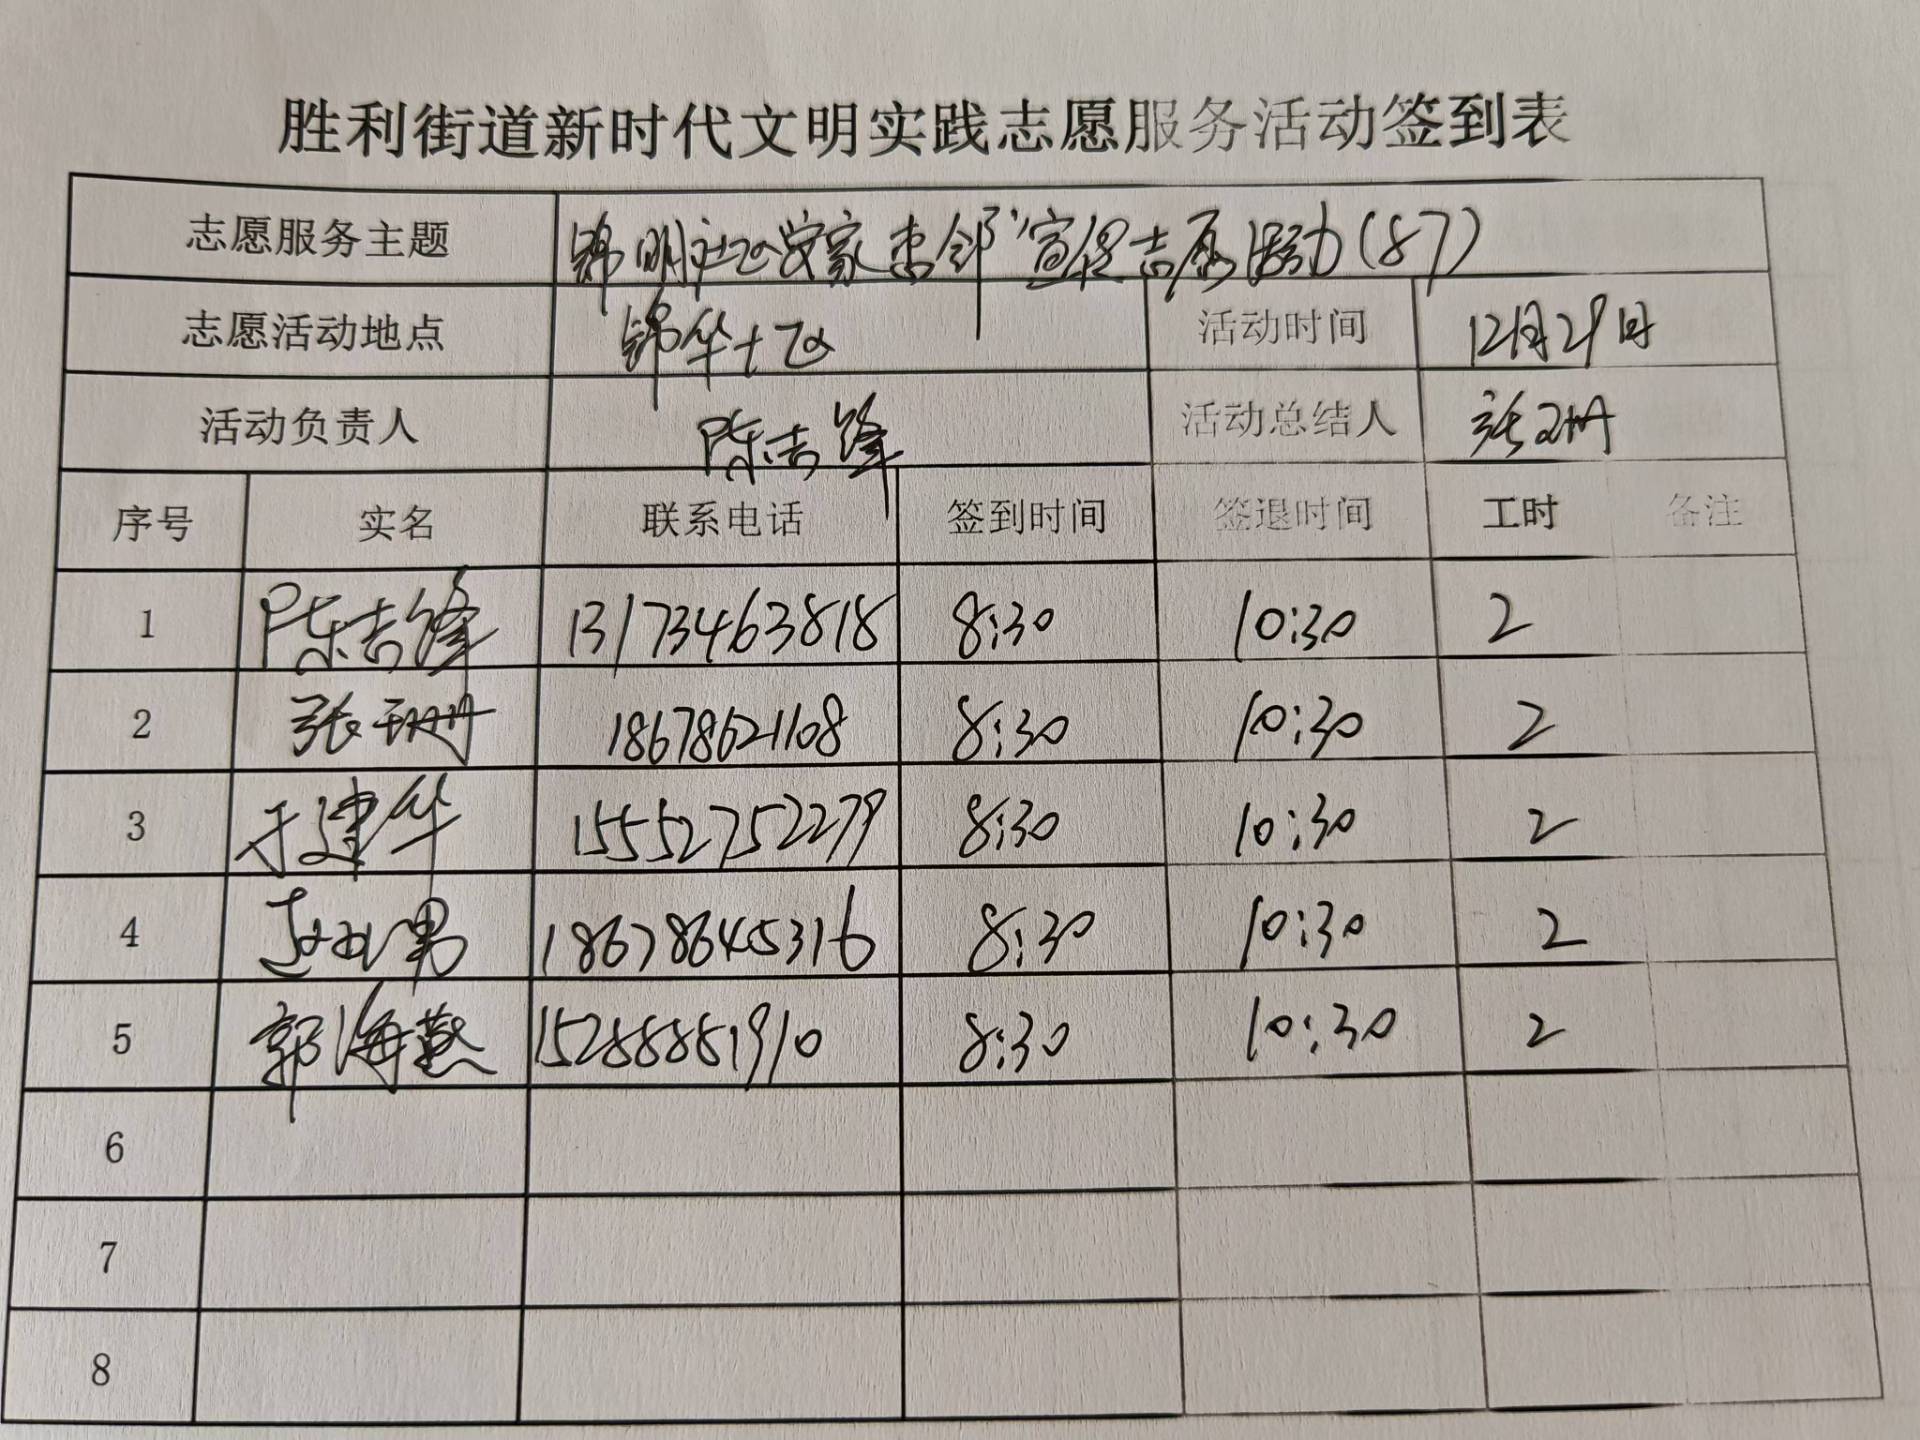 胜利街道新时代文明实践志愿服务活动签到表
志愿服务主题 锦明社区安家杏邻"宣促志愿活动(87)
志愿活动地点 锦华十区 活动时间 12月29日
活动负责人 陈吉锋 活动总结人 张珊
序号 实名 联系电话 签到时间 签退时间 工时 备注
1 陈吉锋 13173463818 8:30 10:30 2
2 张珊 18678621108 8:30 10:30 2
3 于建华 15552752279 8:30 10:30 2
4 男 18678645316 8:30 10:30 2
5 郭海燕 15288881910 8:30 10:30 2
6
7
8